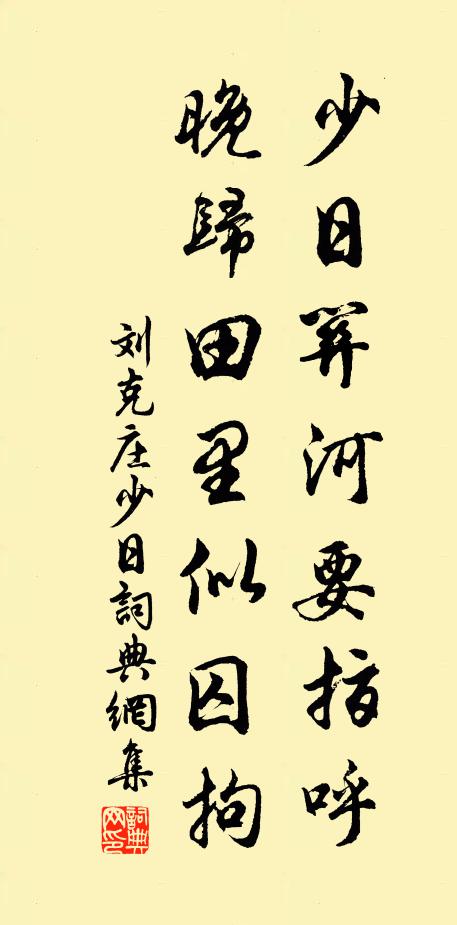 少日關河要指呼
晚歸田里似囚拘
刘克庄少日詞典網集
詞典网印